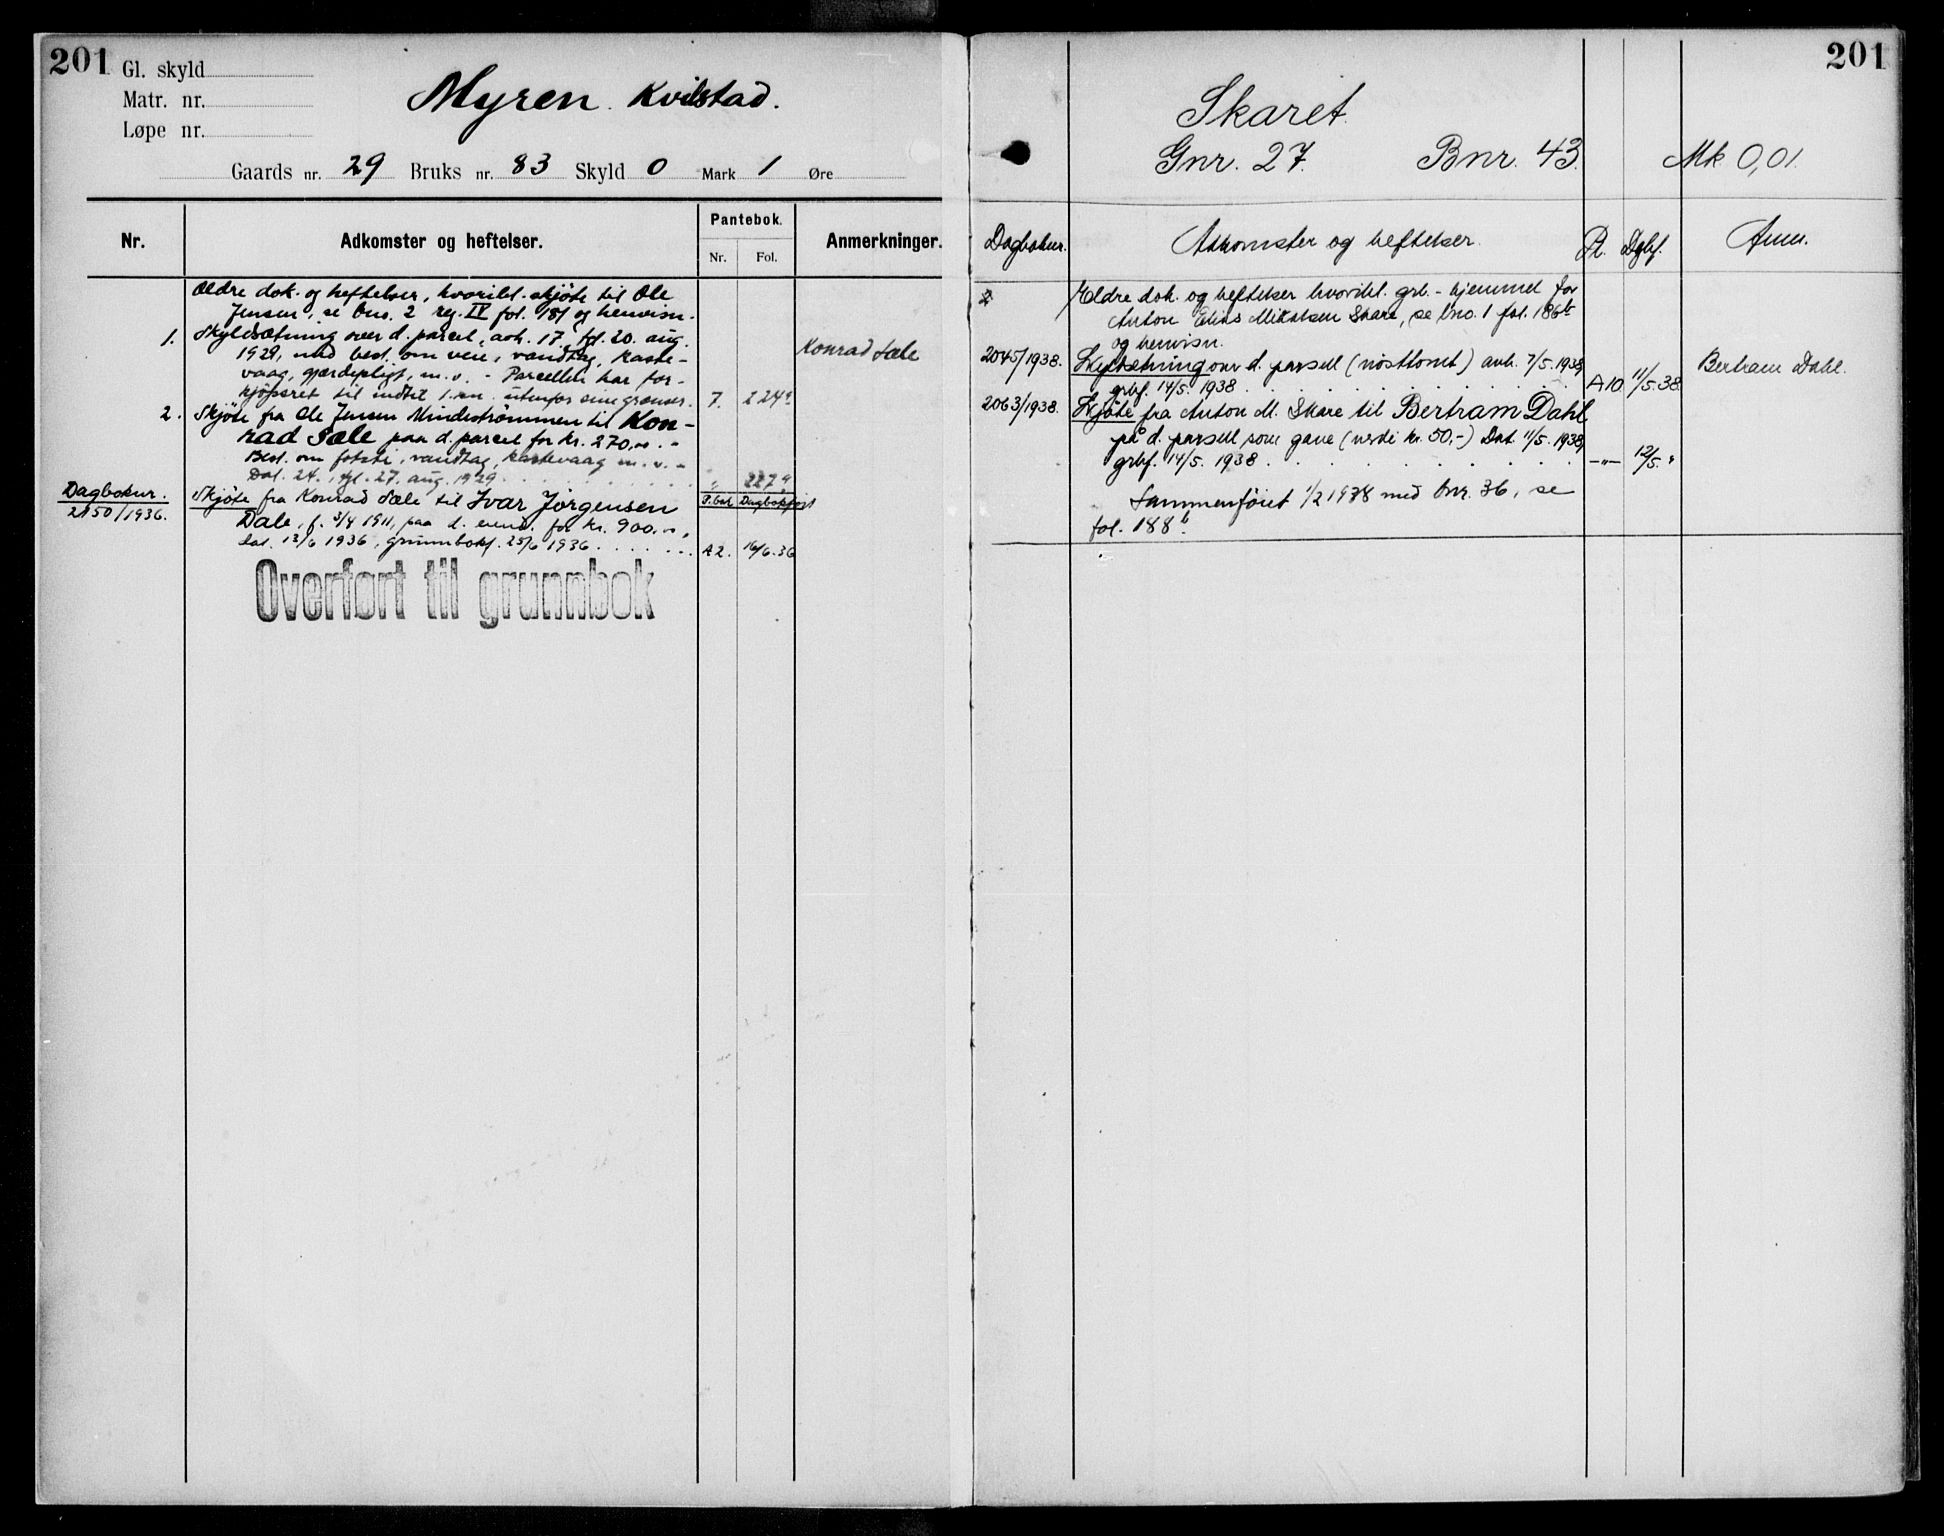 201
Gl. skyld
Matr. nr.
Løpe nr.
Myren Kvilstad.
Gaards nr. 29 Bruks nr. 83 Skyld 0 Mark 1 Øre
Nr.
Adkomster og heftelser.
Pantebok.
Nr. Fol.
Anmerkninger.
Ældre dok. og heftelser, hvoribl. skjøte til Ole
Jensen, se bno. 2 reg. IV fol. 181 og henvisn.
1. Skyldsætning over d. parcel, avh. 17, tgl. 20. aug.
1929, med best. om veie, vandtag, kaste-
vaag, gjærdepligt, m.v. - Parcellen har for-
kjøpsret til indtil 1 m. utenfor sine grænser. 7. 224ᵃ
Konrad Sæle
2. Skjøte fra Ole Jensen Mindestrømmen til Kon-
rad Sæle paa d. parcel for kr. 270,-. -
Best. om fotsti, vandtag, kastevaag m.v. -
Dat. 24., tgl. 27. aug. 1929 . . . " 227ᵃ
Dagboknr.
2150/1936.
P.bok Dagbokført
Skjøte fra Konrad Sæle til Ivar Jørgensen
Dale, f. 3/4 1911, paa d. eiend. for kr. 900.-,
dat. 13/6 1936, grunnbokf. 25/6 1936 . . . A2. 16/6.36
Overført til grunnbok
201
Skaret.
Gnr. 27. Bnr. 43. Mk 0,01.
Dagboknr. Adkomster og heftelser. Pb. Dgbf. Anm.
Ældre dok. og heftelser hvoribl. grb. - hjemmel for
Anton Elias Mikalsen Skare, se bno. 1 fol. 186ᵇ
og henvisn.
2045/1938. Skyldsetning over d. parsell (nøsttomt) avh. 7/5. 1938,
grbf. 14/5. 1938 . . . A10 11/5.38 Bertram Dahl.
2063/1938. Skjøte fra Anton M. Skare til Bertram Dahl
på d. parsell som gave (verdi kr. 50,-) Dat. 11/5. 1938,
grbf. 14/5. 1938 . . . -"- 12/5. "
Sammenføiet 1/2 1938 med bnr. 36, se
fol. 188ᵇ.